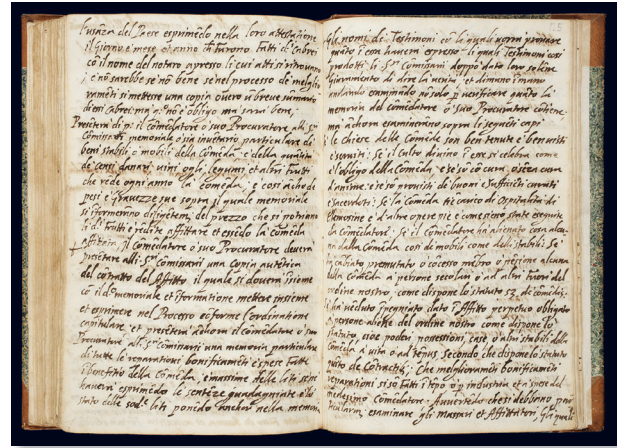 l'usanza del Paese esprimẽdo nella loro attestatione
il giorno e mese et anno furono fatti di Cabrei
cõ il nome del notaro apresso li cui atti si ritrovano
e nõ sarebbe se nõ bene se nel processo di meglio
ramẽti si mettesse una copia overo u breve sumario
d'essi cabrei ma nõ è obligo ma sarà bene,
Presẽterà di p: il comẽdatore o suo Procuratore alli Srⁱ
Comissarii memoriale o sia invẽtario particulare di
beni stabili, o mobili della Comẽda e della quãtità
de censi danari, vini, ogli, legumi et altri frutti
che rẽde ogni anno la comẽda, e così ancho de
pesi e gravezze sue sopra il quale memoriale
si informerãno del prezzo che si potriano
li frutti e rẽdite affittare et essẽdo la comẽda
affittata, il Comẽdatore o suo Procuratore deverà
presẽtare alli Srⁱ Comissarii una copia autẽtica
del cõtratto del Affitto, il quale si doverà ĩsieme
cõ il dº memoriale et ĩformatione mettere insieme
et esprimere nel Processo cõforme l'ordinatione
capitulare, et presẽterà anchora il comẽdatore o suo
Procuratore alli Srⁱ Comissarii una memoria particulare
di tutte le reparationi bonificamẽti e spese fatte
ĩ benefitio della Comẽda, e massime delle liti se ne
haverà esprimẽdo le sentẽze guadagniate e lo
stato delle sudᵉ liti ponẽdo anchor nella memoria
Gli nomi de Testimoni cõ li quali vorrà provare
quãto ĩ essa haverà espresso li quali Testimoni così
prodotti li Srⁱ Comissarii doppo dato loro soline
Giuramento di dire la verità et dimano ĩ mano
andarãno esaminãdo nõ solo p verificare quãto la
memoria del comẽdatore o suo Procuratore cõtiene
ma anchora esaminerãno sopra li sequẽti capi
le chiese delle Comẽde son ben tenute e ben visti
e serviti: Se il Culto divino ĩ esse si celebra come
è l'obligo della Comẽda, e se sõ cõ cura, o senza cura
d'anime, e se sõ provisti de buoni e sufficiẽti curati
e sacerdoti: Se la Comẽda tiẽ carico de Ospitalità di
elemosine e d'altre opere pie e come siano state eseguite
da Comẽdatori, Se il comẽdatore ha alienato cosa alcu
na dalla Comẽda così de mobili come delli stabili: Se
tagliato premutato o cõcesso ĩ pẽsione alcuna
della Comẽda a persone secolari o ad altri fuori del
ordine nostro, come dispone lo statuto 52. de comẽdi:
li ha vẽduto ĩpegniato dato ĩ Affitto perpetuo obligato
a persone aliene del ordine nostro come dispone lo
statuto, cioè poderi, possessioni, case, o altri stabili della
Comẽda a vita o ad tẽpus secondo che dispone lo statuto
de Cõtractib: Che meglioramẽti bonificamẽti
reparationi si sõ fatti ĩ tẽpo p industria et a spese del
medesimo Comẽdatore. Avvertẽdo che si debbono par
ticularmẽ esaminare gli massari et Affittatori, Gli quali